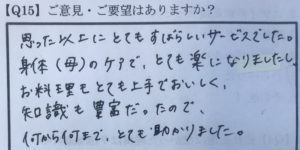 【Q15】ご意見・ご要望はありますか？
思った以上にとてもすばらしいサービスでした。
身体（母）のケアで、とても楽になりましたし、
お料理もとても上手でおいしく、
知識も豊富だったので、
何から何まで、とても助かりました。